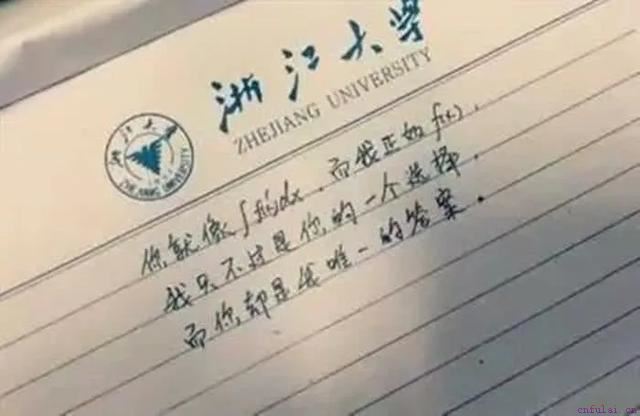 浙江大学
ZHEJIANG UNIVERSITY
浙江大学
ZHEJIANG UNIVERSITY
你就像∫f(x)dx,而我正如f(x),
我只不过是你的一个选择,
而你却是我唯一的答案。
cnfulai.cn